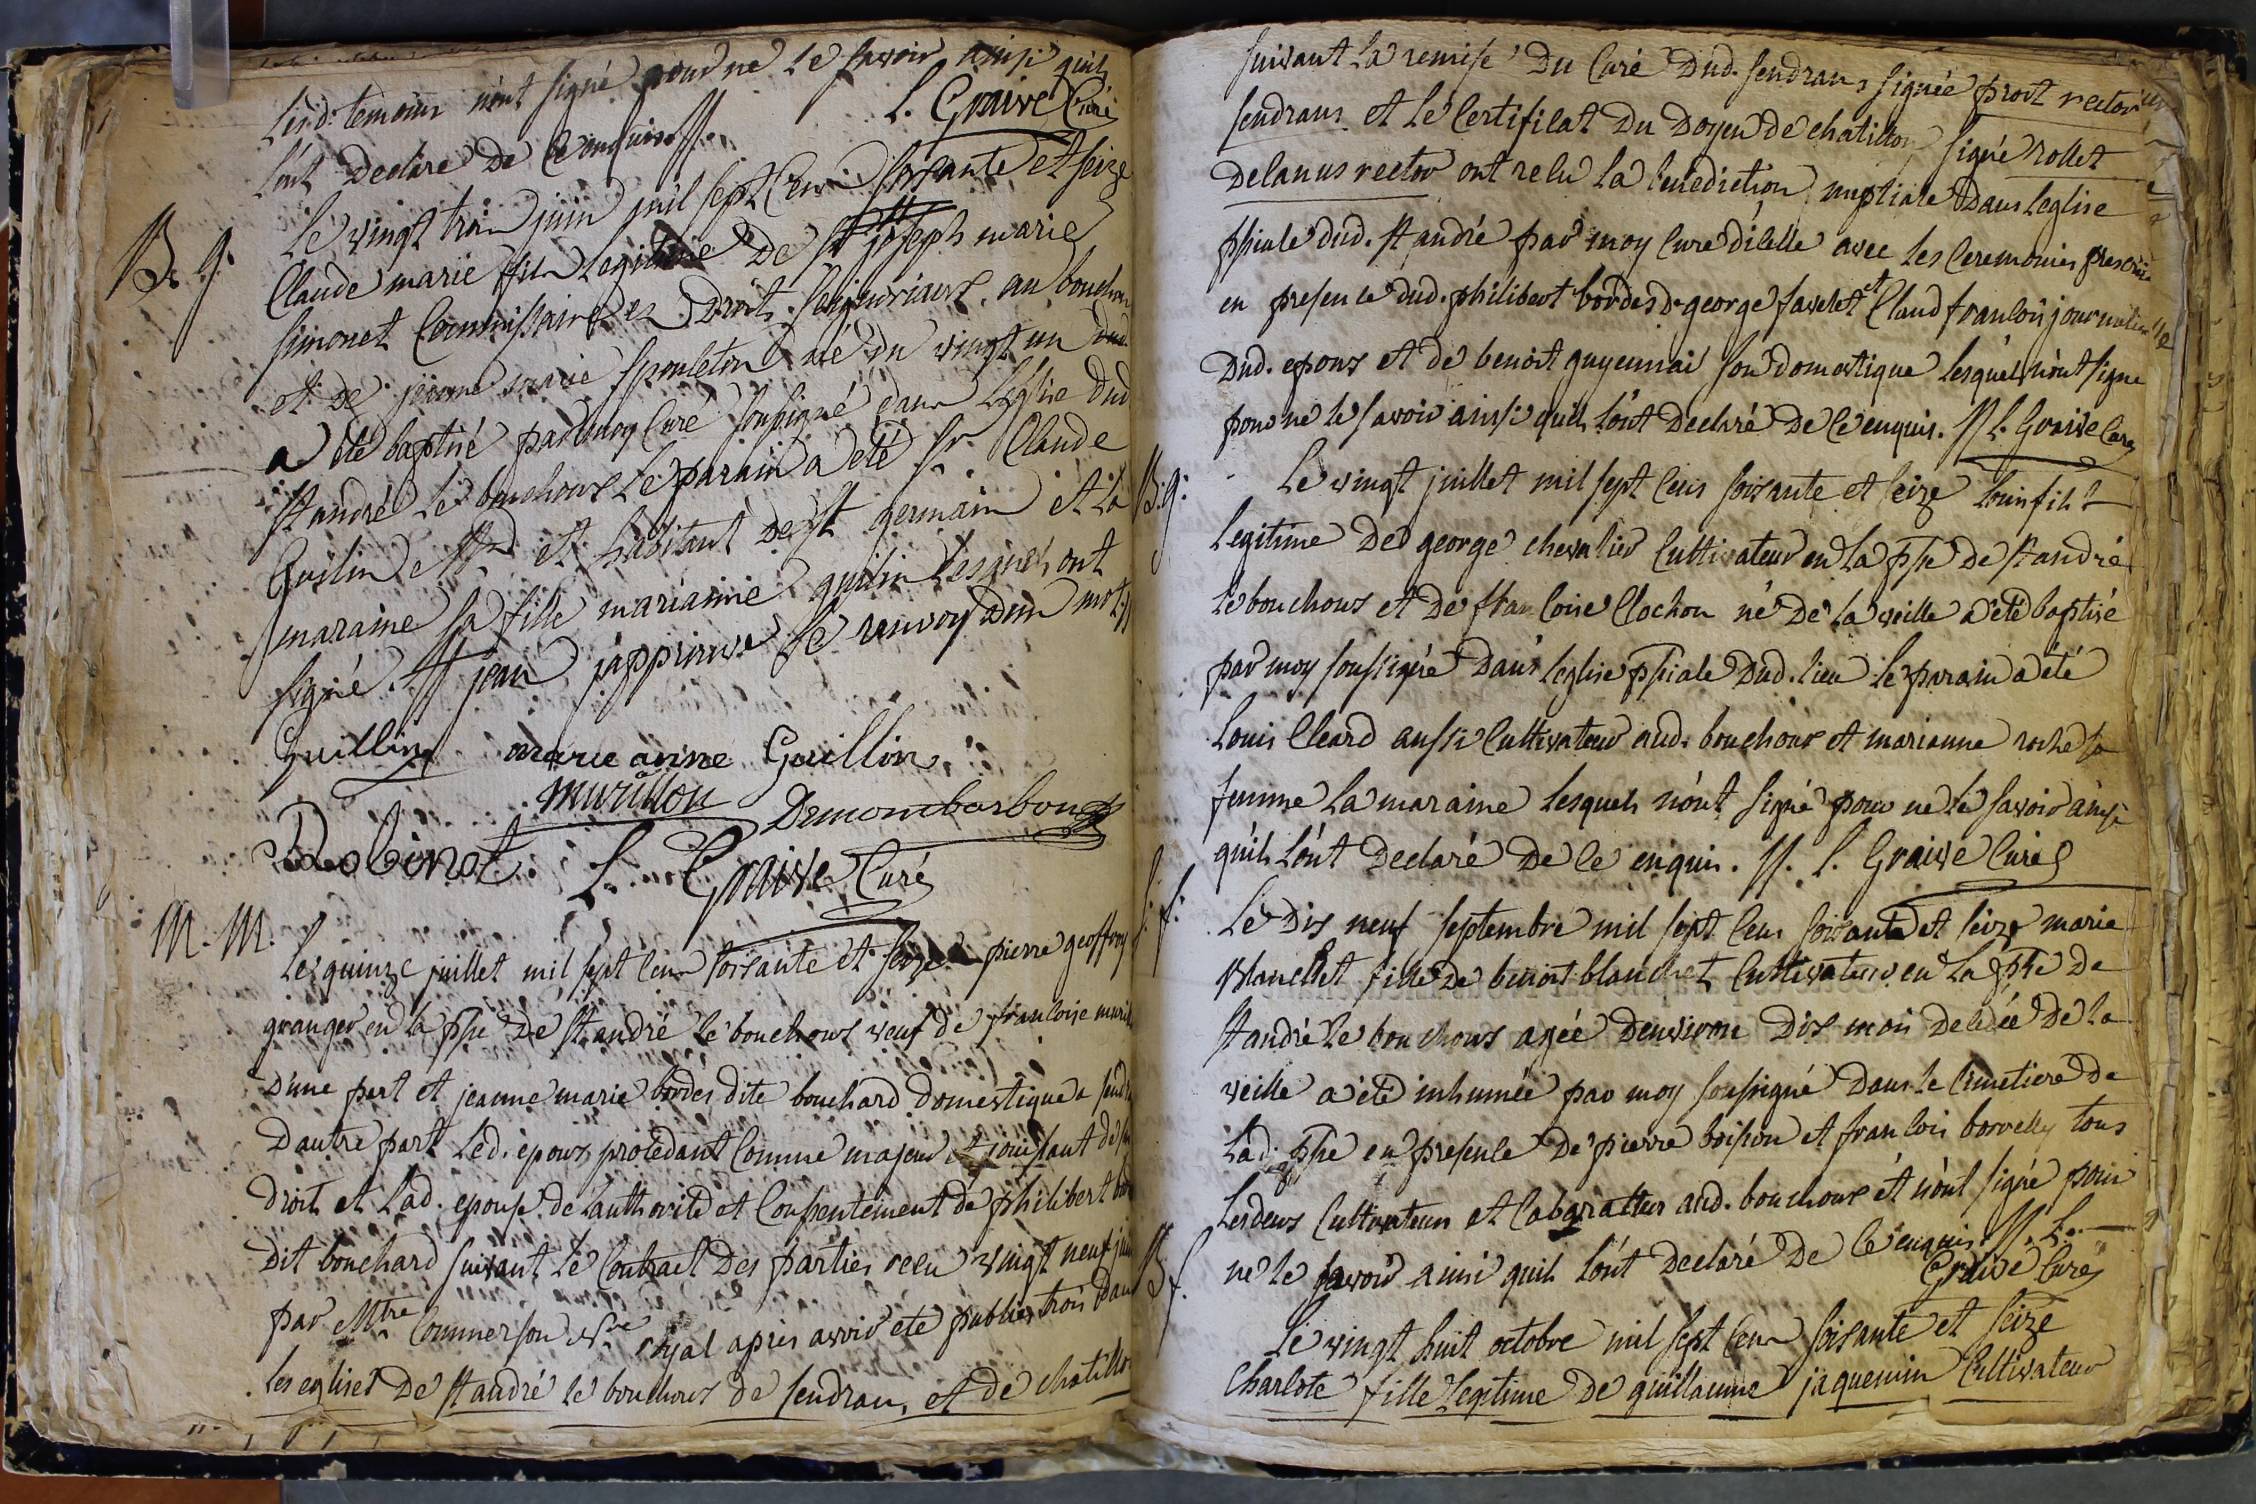 Lesd. temoins n'ont signé pour ne le savoir ainsi quils
l'ont declaré de ce enquis. //. L. Graive Curé
B. g. Le vingt trois juin mil sept cens soixante et seize
Claude marie fils legitime de joseph marie
simonet Commissaire es Droits seigneuriaux au bouchoux
et de jeanne marie sponleton né du vingt un dud
a été baptisé par moy Curé soussigné dans l'Eglise dud
st andré le bouchoux Le parain a été sr. Claude
Guilin et habitant de st germain et la
maraine sa fille marianne guilin lesquels ont
signé. // jean j'approuve le renvoy d'un mot. //
Guillin marie anne Guillin
murillon Demonbarbon
Robinot. L. Graive Curé
M. M. Le quinze juillet mil sept cens soixante et seize pierre geoffroy
granger en la psse de st andré le bouchoux veuf de francoise
D'une part et jeanne marie bordes dite bouchard domestique a
D'autre part Led. epoux procedant Comme majeur et jouissant de
droits et Lad. epouse de l'authorité et Consentement de philibert
dit bouchard suivant le Contract des parties recu vingt neuf
par Mtre Commerson Nre Royal apres avoir été publiés trois
les eglises de st andré le bouchoux de sendrans, et de chatillon
suivant la remise du Curé dud. sendrans signée prost rector
sendrans et le Certificat du Doyen de chatillon signé rollet
Decanus rector ont recu la benediction nuptiale dans leglise
pssiale dud. st andré par moy Curé d'icelle avec les Ceremonies
en presence dud. philibert bordes de george favelet et Claud francois
Dud. epoux et de benoit guyennai son domestique lesquels n'ont signé
pour ne le savoir ainsi quils l'ont declaré de ce enquis. // L. Graive Curé
B. g. Le vingt juillet mil sept cens soixante et seize louis fils
legitime de george chevalier Cultivateur en la psse de st andré
le bouchoux et de francoise Clochon né de la veille a été baptisé
par moy soussigné dans leglise pssiale dud. lieu le parain a été
Louis Cleard aussi Cultivateur aud. bouchoux et marianne roche sa
femme la maraine lesquels n'ont signé pour ne le savoir ainsi
quils l'ont declaré de ce enquis. //. L. Graive Curé
S. f. Le dix neuf septembre mil sept cens soixante et seize marie
Blanchet fille de benoit blanchet Cultivateur en la psse de
st andré le bouchoux agée d'environ dix mois decedée de la
veille a été inhumée par moy soussigné dans le Cimetiere de
Lad. psse en presence de pierre boisson et francois borvelly tous
les deux Cultivateurs et Cabaratier aud. bouchoux et n'ont signé pour
ne le savoir ainsi quils l'ont declaré de ce enquis //. L.
Graive Curé
B. f. Le vingt huit octobre mil sept cens soixante et seize
Charlote fille legitime de guillaume jaquemin Cultivateur